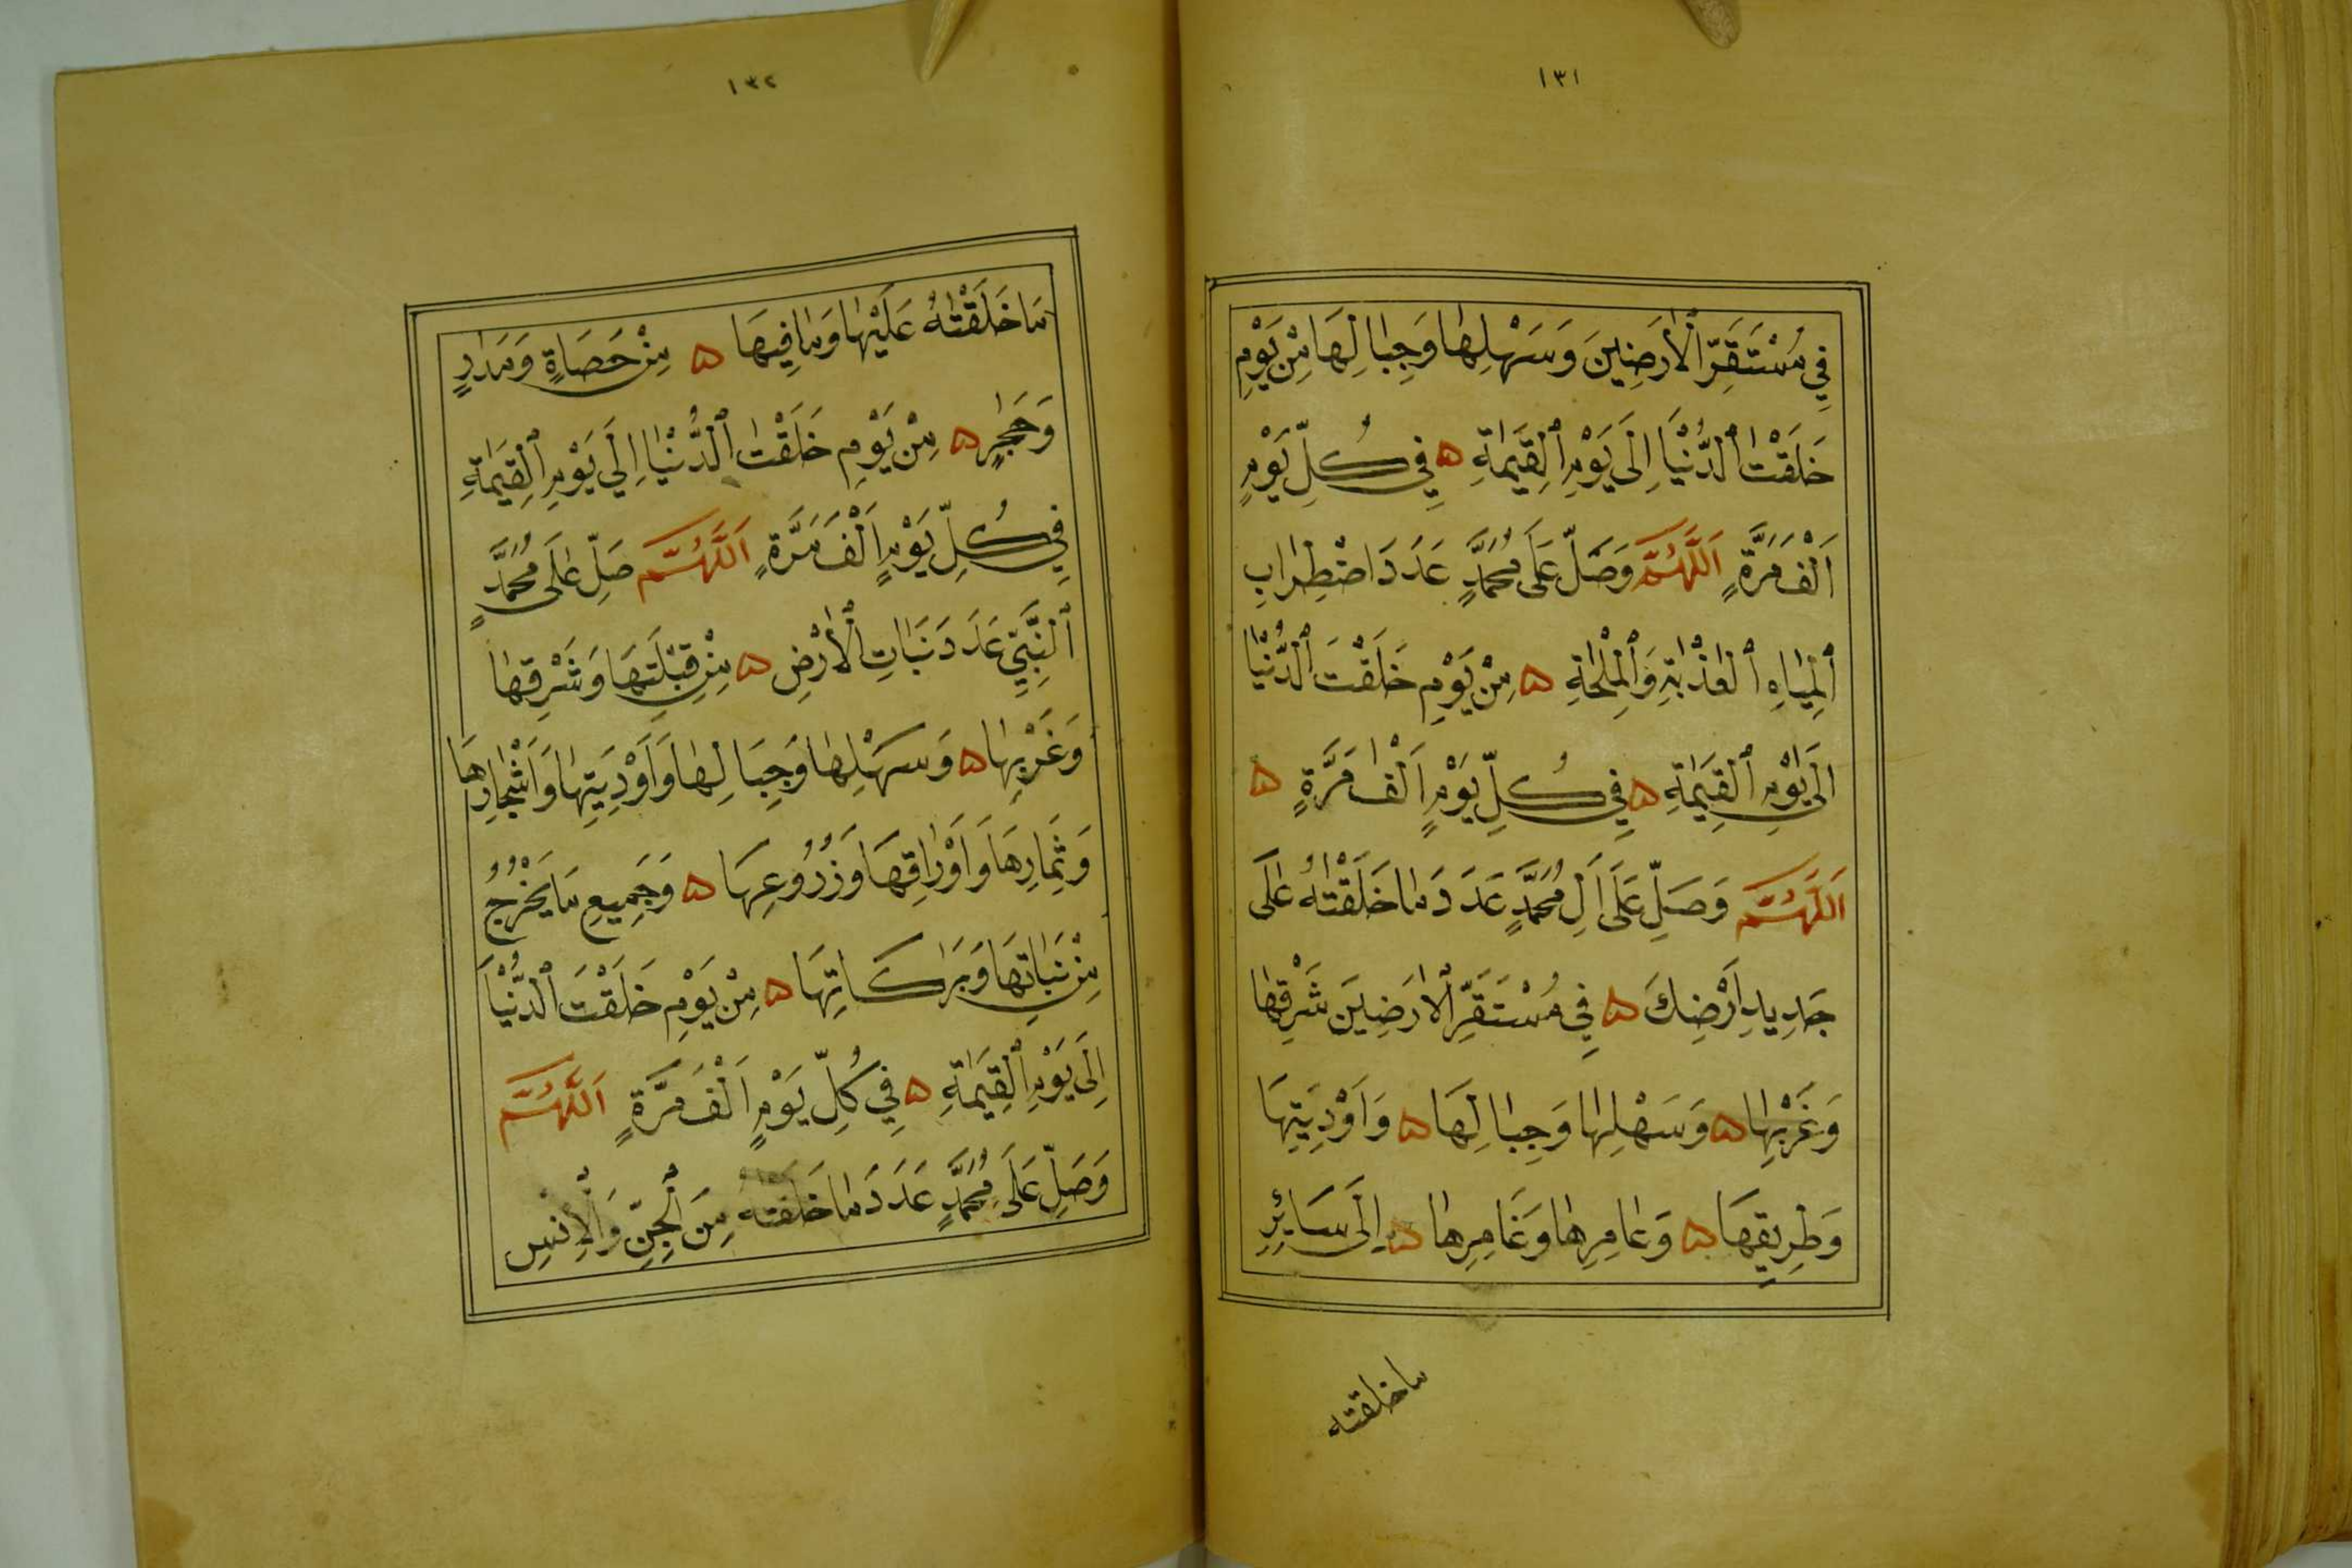 ١٣١
فِي مُسْتَقَرِّ الْأَرَضِينَ وَسَهْلِهَا وَجِبَالِهَا مِنْ يَوْمِ
خَلَقْتَ الدُّنْيَا اِلَى يَوْمِ الْقِيَمَةِ ه فِي كُلِّ يَوْمٍ
اَلْفَ مَرَّةٍ اَللَّهُمَّ وَصَلِّ عَلَى مُحَمَّدٍ عَدَدَ اضْطِرَابِ
الْمِيَاهِ الْعَذْبَةِ وَالْمِلْحَةِ ه مِنْ يَوْمِ خَلَقْتَ الدُّنْيَا
اِلَى يَوْمِ الْقِيَمَةِ ه فِي كُلِّ يَوْمٍ اَلْفَ مَرَّةٍ ه
اَللَّهُمَّ وَصَلِّ عَلَى اَلِ مُحَمَّدٍ عَدَدَ مَا خَلَقْتَهُ عَلَى
جَدِيدِ اَرْضِكَ ه فِي مُسْتَقَرِّ الْاَرَضِينَ شَرْقِهَا
وَغَرْبِهَا ه وَسَهْلِهَا وَجِبَالِهَا ه وَاَوْدِيَتِهَا
وَطَرِيقِهَا ه وَعَامِرِهَا وَغَامِرِهَا ه اِلَى سَائِرِ
ما خلقته
١٣٢
مَا خَلَقْتَهُ عَلَيْهَا وَمَا فِيهَا ه مِنْ حَصَاةٍ وَمَدَرٍ
وَحَجَرٍ ه مِنْ يَوْمِ خَلَقْتَ الدُّنْيَا اِلَي يَوْمِ الْقِيَمَةِ
فِي كُلِّ يَوْمٍ اَلْفَ مَرَّةٍ اَللَّهُمَّ صَلِّ عَلَى مُحَمَّدٍ
النَّبِيِّ عَدَدَ نَبَاتِ الْأَرْضِ ه مِنْ قِبْلَتِهَا وَشَرْقِهَا
وَغَرْبِهَا ه وَسَهْلِهَا وَجِبَالِهَا وَاَوْدِيَتِهَا وَاَشْجَارِهَا
وَثِمَارِهَا وَاَوْرَاقِهَا وَزُرُوعِهَا ه وَجَمِيعِ مَا يَخْرُجُ
مِنْ نَبَاتِهَا وَبَرَكَاتِهَا ه مِنْ يَوْمِ خَلَقْتَ الدُّنْيَا
اِلَى يَوْمِ الْقِيَمَةِ ه فِي كُلِّ يَوْمٍ اَلْفَ مَرَّةٍ اَللَّهُمَّ
وَصَلِّ عَلَى مُحَمَّدٍ عَدَدَ مَا خَلَقْتَهُ مِنَ الْجِنِّ وَالْاِنْسِ